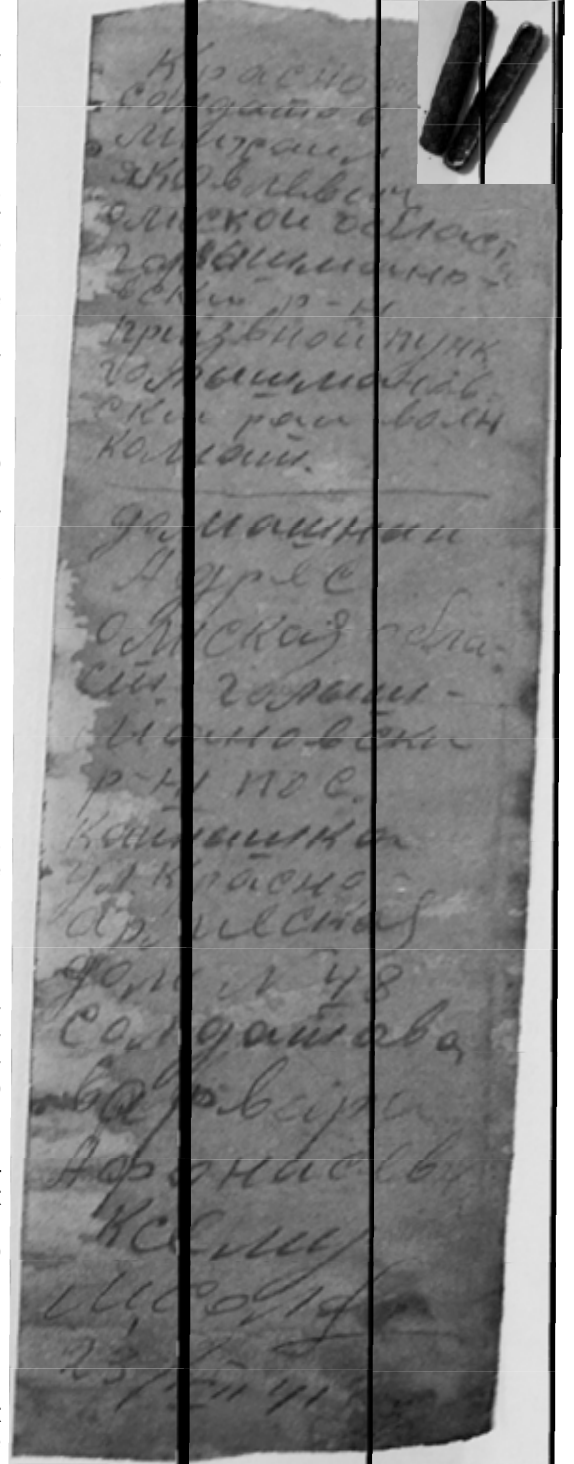 Красно
Солдатов
Михаил
Яковлевич
омской област
голышмано-
вский р-н
призвной пунк
голышманов-
ски раи воен
комат.
домашнии
Адрес
омская обла-
ст. голыш-
мановски
р-н пос.
Катышка
ул Красно-
армеская
дом N 48
Солдатова
Варвара
Афонасев
Ксему